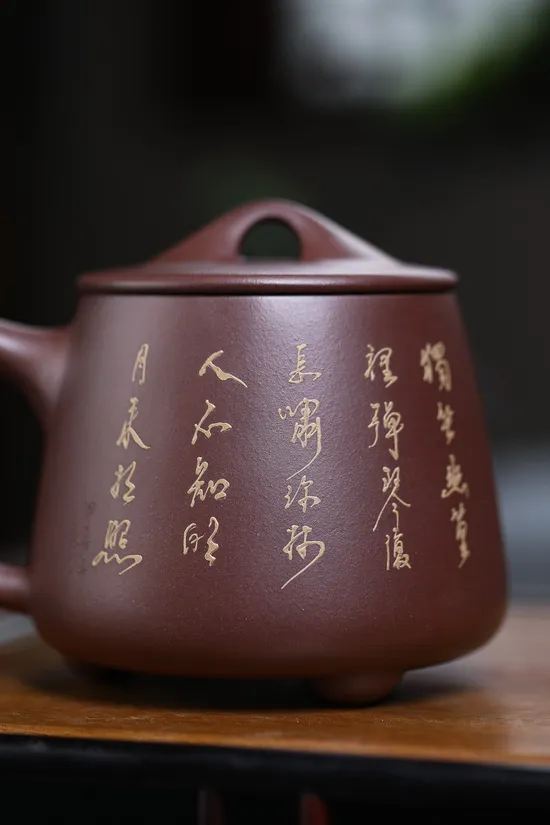 獨坐幽篁
裡彈琴復
長嘯深林
人不知明
月来相照